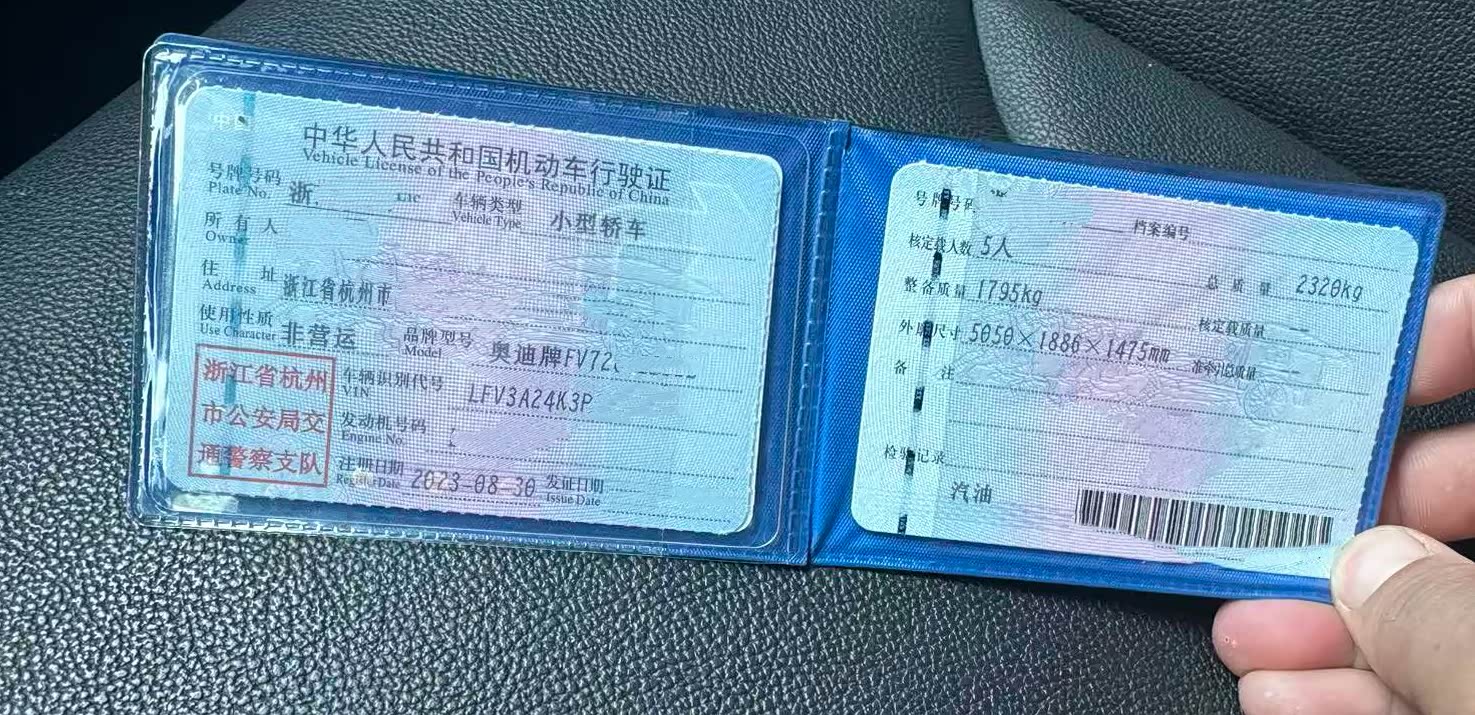 中华人民共和国机动车行驶证
Vehicle License of the People's Republic of China
号牌号码 浙 车辆类型 小型轿车
Plate No. Vehicle Type
所有人
Owner
住址 浙江省杭州市
Address
使用性质 非营运 品牌型号 奥迪牌FV72
Use Character Model
浙江省杭州
市公安局交
通警察支队
车辆识别代号 LFV3A24K3P
VIN
发动机号码
Engine No.
注册日期 2023-08-30 发证日期
Register Date Issue Date
号牌号码 档案编号
核定载人数 5人 总质量 2320kg
整备质量 1795kg 核定载质量 —
外廓尺寸 5050×1886×1475mm 准牵引总质量 —
备注
检验记录
汽油